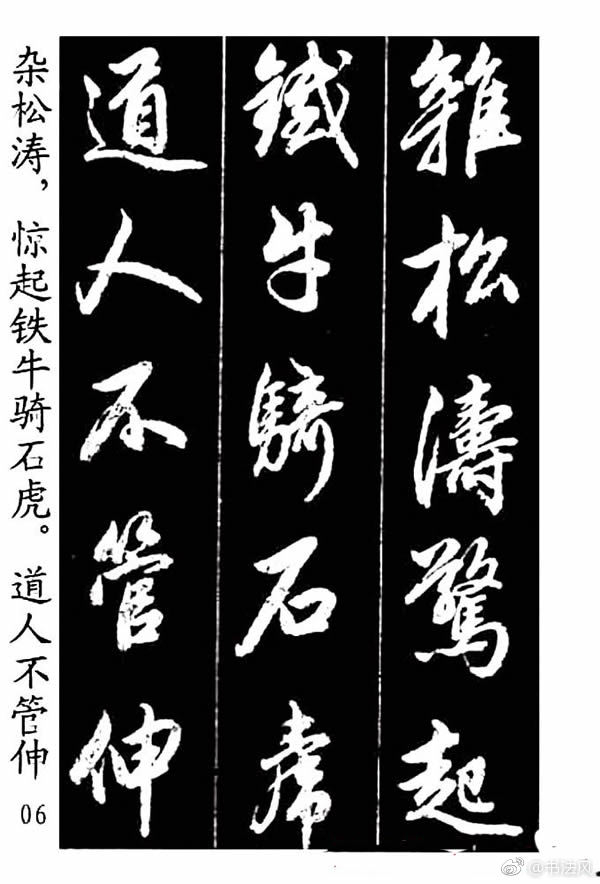 雜松濤驚起
鐵牛騎石虎
道人不管伸
杂松涛，惊起铁牛骑石虎。道人不管伸
06
@书法风